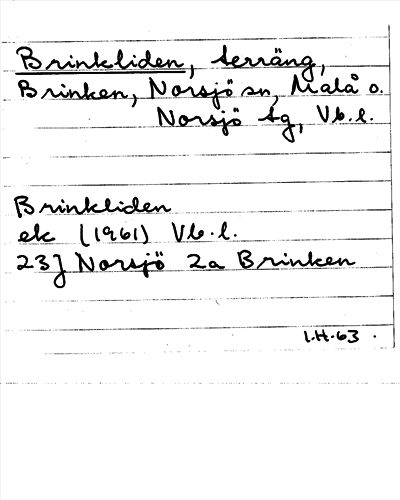 Brinkliden, terräng,
Brinken, Norsjö sn, Malå o.
Norsjö tg, Vb.l.
Brinkliden
ek (1961) Vb.l.
23J Norsjö 2a Brinken
I.H.63